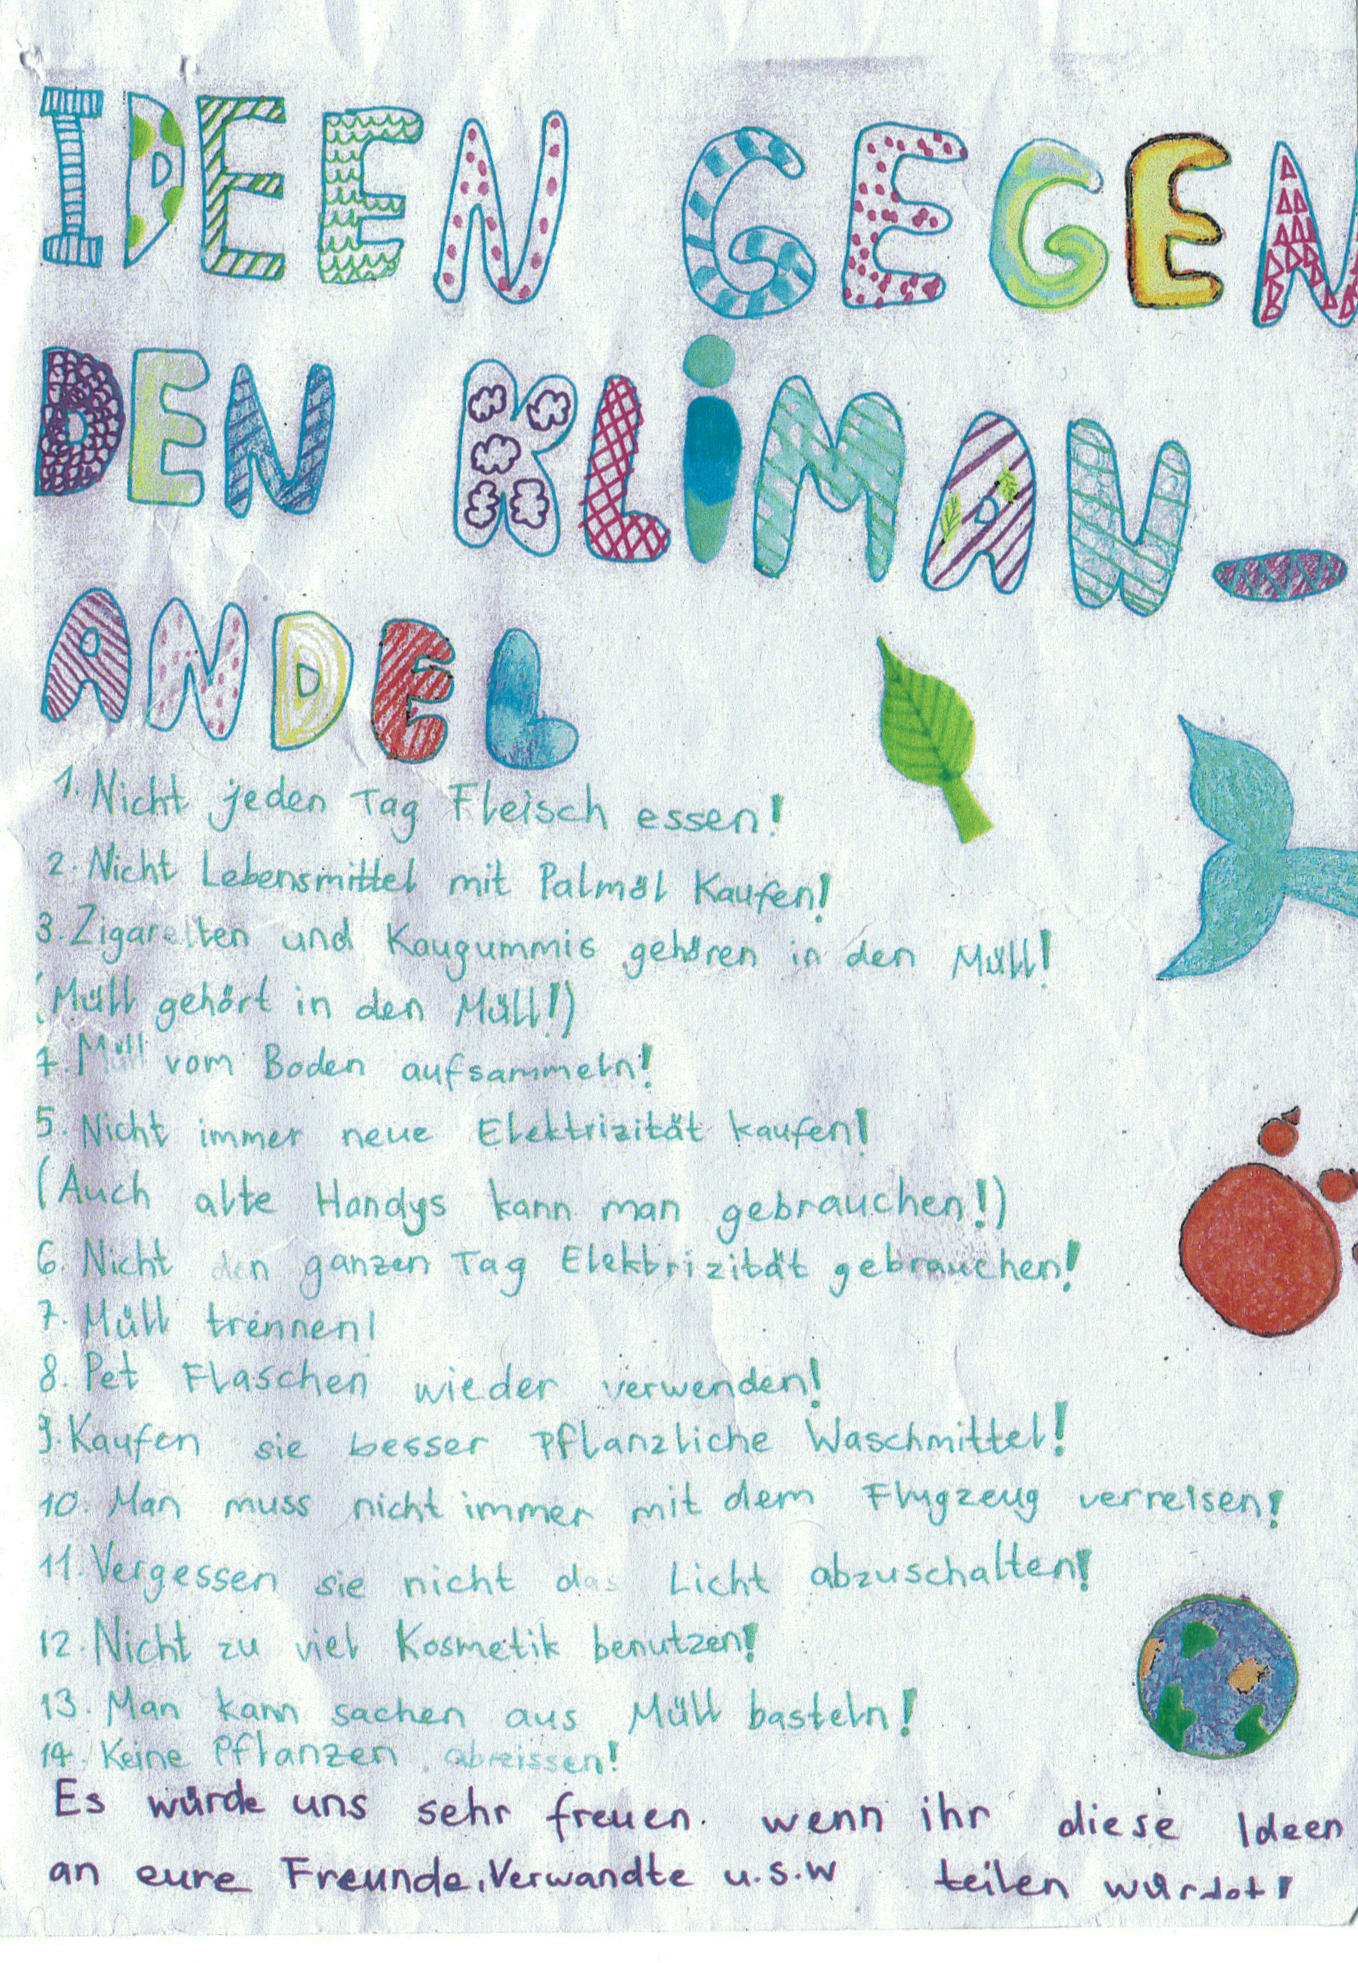 IDEEN GEGEN
DEN KLiMAW-
ANDEL
1. Nicht jeden Tag Fleisch essen!
2. Nicht Lebensmittel mit Palmöl Kaufen!
3. Zigaretten und Kaugummis gehören in den Müll!
(Müll gehört in den Müll!)
4. Müll vom Boden aufsammeln!
5. Nicht immer neue Elektrizität kaufen!
(Auch alte Handys kann man gebrauchen!)
6. Nicht den ganzen Tag Elektrizität gebrauchen!
7. Müll trennen!
8. Pet Flaschen wieder verwenden!
9. Kaufen sie besser Pflanzliche Waschmittel!
10. Man muss nicht immer mit dem Flugzeug verreisen!
11. Vergessen sie nicht das Licht abzuschalten!
12. Nicht zu viel Kosmetik benutzen!
13. Man kann sachen aus Müll basteln!
14. Keine Pflanzen abreissen!
Es würde uns sehr freuen. wenn ihr diese Ideen
an eure Freunde, Verwandte u.s.w teilen würdet!